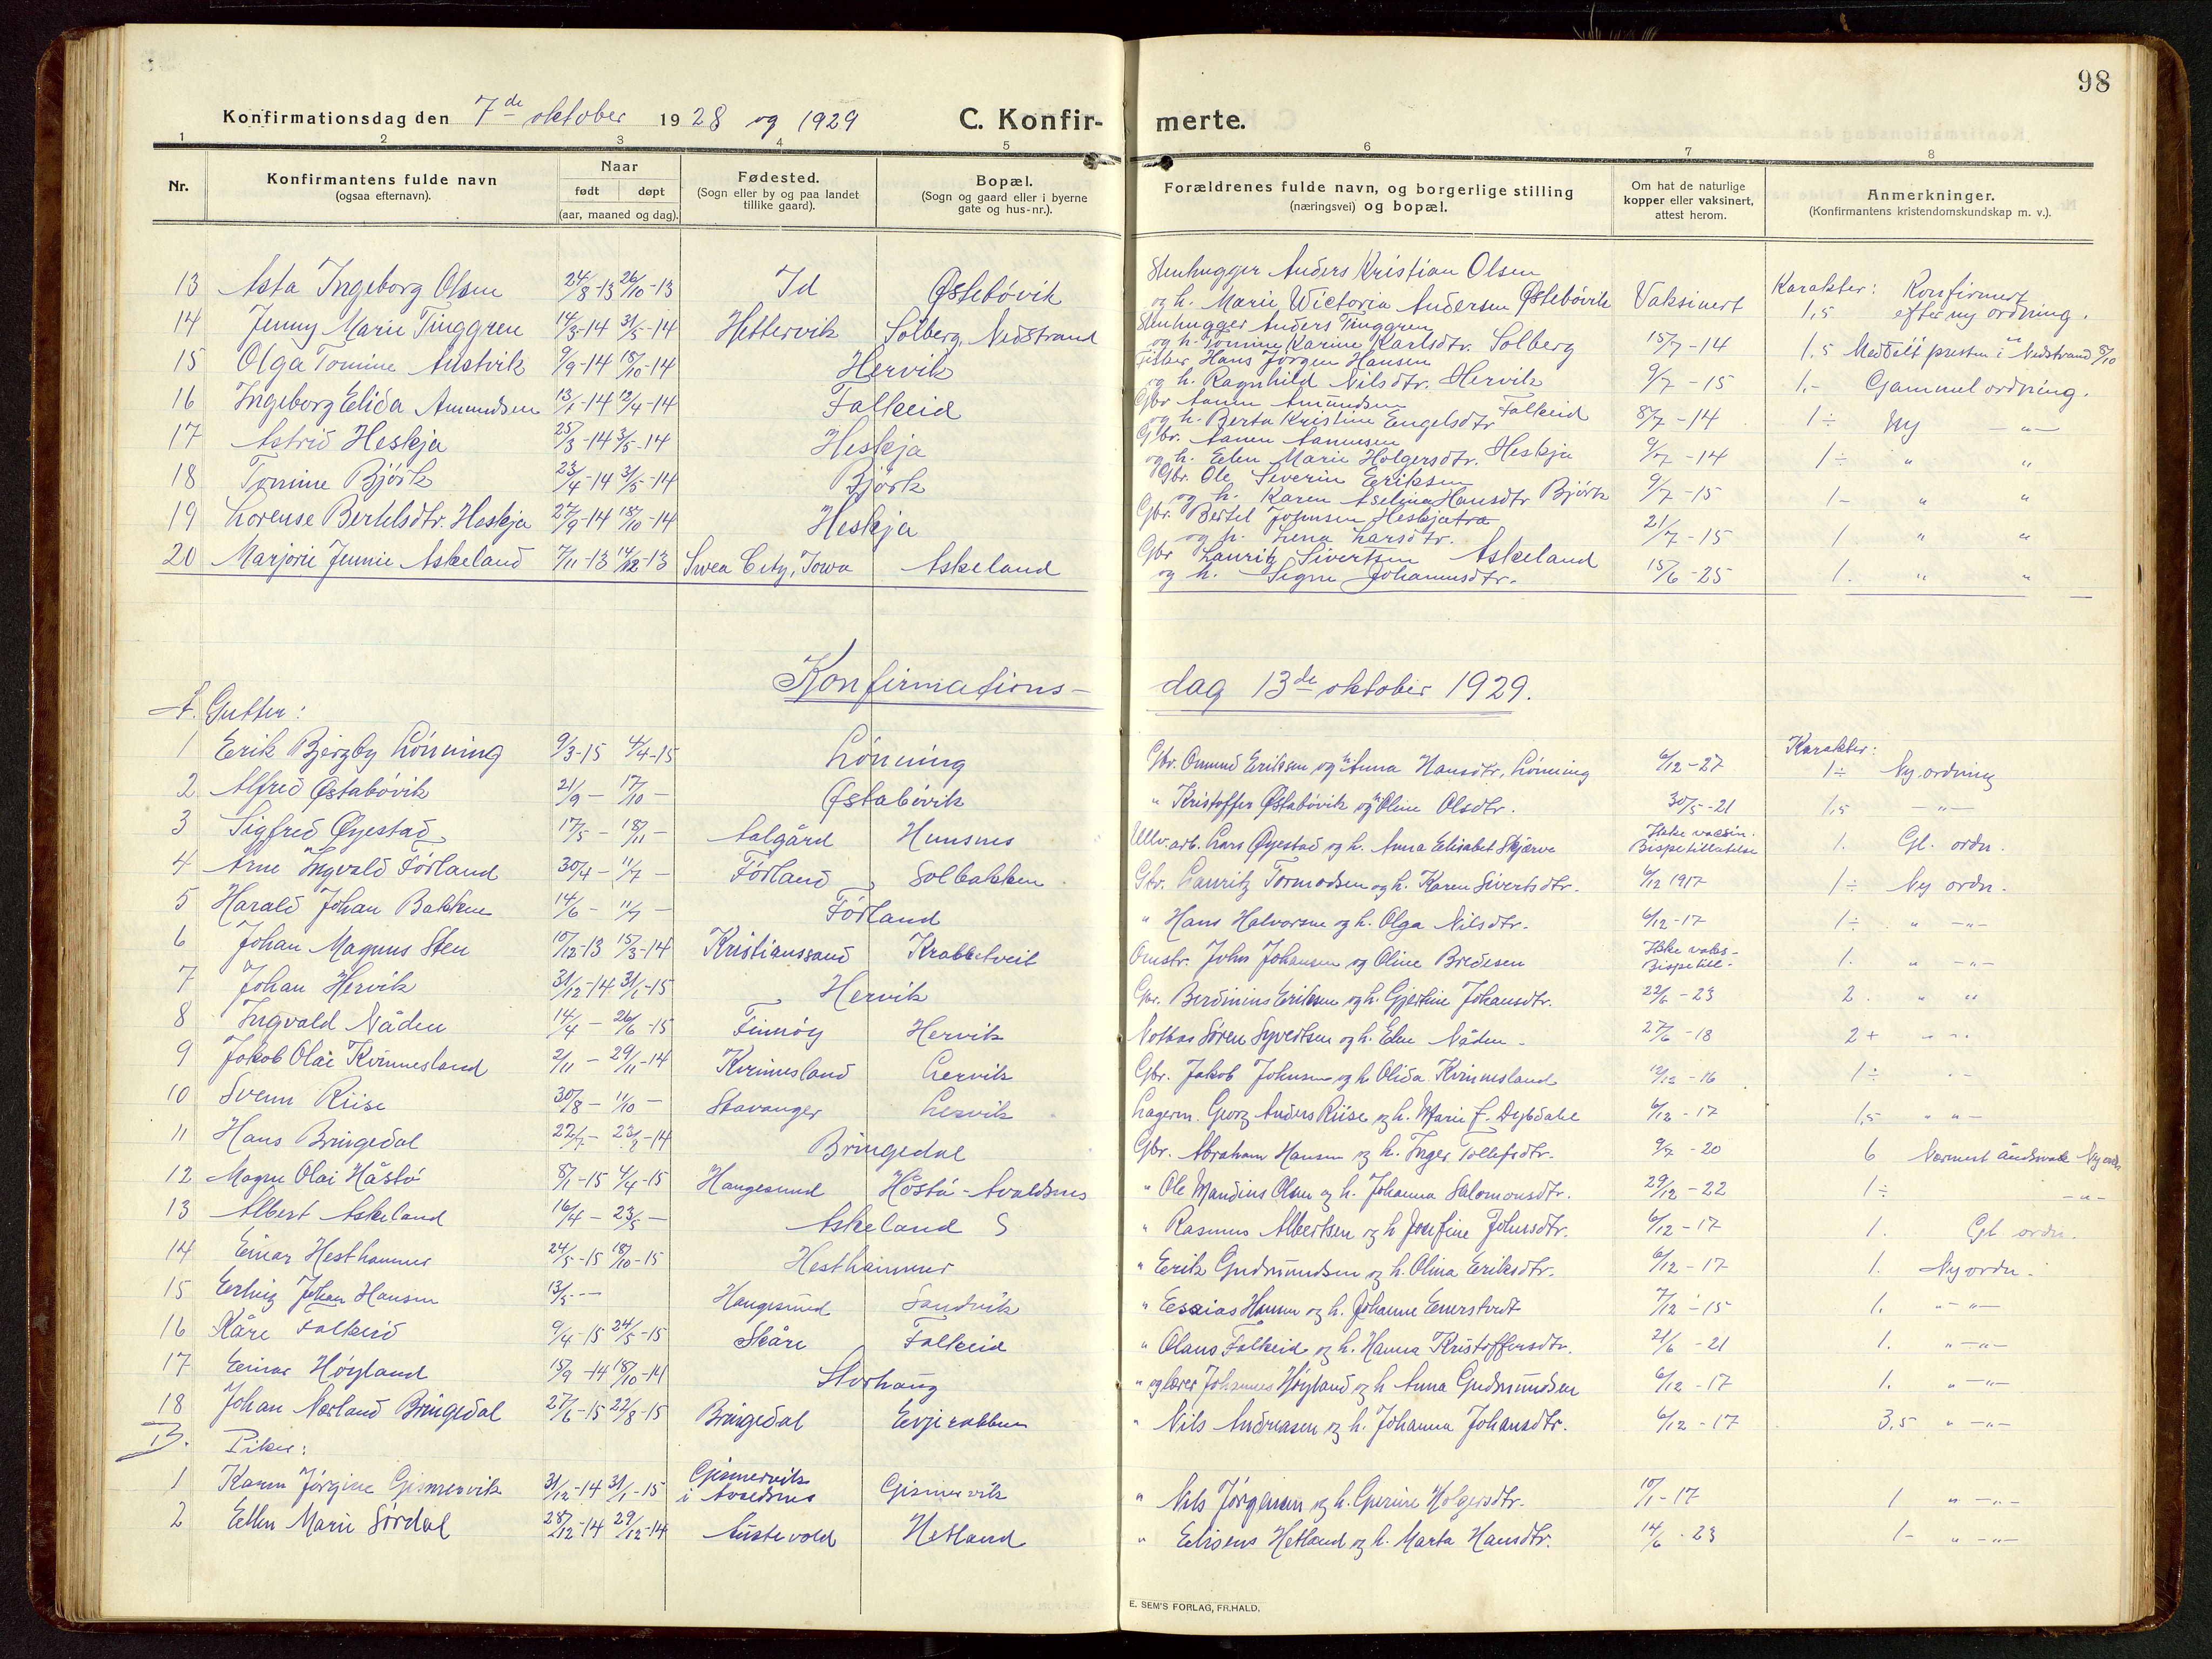 98
Konfirmationsdag den 7de oktober 1928 og 1929 C. Konfir- merte.
1 2 3 4 5 6 7 8
Nr. Konfirmantens fulde navn (ogsaa efternavn). Naar født døpt (aar, maaned og dag). Fødested. (Sogn eller by og paa landet tillike gaard). Bopæl. (Sogn og gaard eller i byerne gate og hus-nr.). Forældrenes fulde navn, og borgerlige stilling (næringsvei) og bopæl. Om hat de naturlige kopper eller vaksinert, attest herom. Anmerkninger. (Konfirmantens kristendomskundskap m. v.).
Stenhugger Anders Kristian Olsen
13 Asta Ingeborg Olsen 24/8-13 26/10-13 Id Østebövik og h. Marie Wictoria Andersen Østebövik Vaksinert Karakter: 1,5 Konfirmert efter ny ordning.
Stenhugger Anders Tinggren
14 Jenny Marie Tinggren 14/3-14 31/5-14 Hettervik Solberg, Nedstrand og h. Tomine Karine Karlsdtr. Solberg 15/7-14 1,5 Meddelt presten i Nedstrand 8/10
Fisker Hans Jörgen Hansen
15 Olga Tomine Austvik 9/9-14 18/10-14 Hervik og h. Ragnhild Nilsdtr. Hervik 9/7-15 1,- Gammel ordning.
Gbr Aanen Amundsen
16 Ingeborg Elida Amundsen 13/1-14 12/4-14 Falkeid og h. Berta Kristine Engelsdtr Falkeid 8/7-14 1÷ Ny -"-
Gbr. Aanen Aanensen
17 Astrid Heskja 25/3-14 3/5-14 Heskja og h. Elen Marie Holgersdtr. Heskja 9/7-14 1÷ " "
Gbr. Ole Severin Eriksen
18 Tomine Björk 23/4-14 31/5-14 Björk og h. Karen Aselina Hansdtr Björk 9/7-15 1- " "
Gbr. Bertel Johnsen Heskjatra
19 Lorense Bertelsdtr. Heskja 27/9-14 18/10-14 Heskja og h. Lena Larsdtr. 21/7-15 1 " "
Gbr Lauritz Sivertsen Askeland
20 Marjorie Jennie Askeland 7/11-13 14/12-13 Swea City, Iowa Askeland og h. Signe Johannesdtr. 15/6-25 1. " "
Konfirmations- dag 13de oktober 1929.
A. Gutter:
Karakter:
1 Erik Bjerzby Lönning 9/3-15 4/4-15 Lönning Gbr. Omund Eriksen og h Anna Hansdtr, Lönning 6/12-27 1÷ Ny ordning
2 Alfred Østabövik 21/9- 17/10- Østabövik " Kristoffer Østabövik og h Oline Olsdtr. 30/5-21 1,5 -"-
3 Sigfred Øyestad 17/5- 18/11- Aalgård Hunsnes Ullv.arb. Lars Øyestad og h. Anna Elisabet Skjærve Ikke vaksin. Bispetillatelse 1. Gl. ordn.
4 Arne Ingvald Förland 30/4- 11/7- Förland Solbakken Gbr. Lauritz Tormodsen og h. Karen Sivertsdtr. 6/12 1917 1÷ Ny ordn.
5 Harald Johan Bakken 14/6- 11/7- Förland " Hans Halvorsen og h. Olga Nilsdtr. 6/12-17 1÷ " -"-
6 Johan Magnus Sten 10/12-13 15/3-14 Kristianssand Krabbetveit Omstr. Johs Johansen og Oline Bredesen Ikke vaks- Bispetill- 1. " -"-
7 Johan Hervik 31/12-14 31/1-15 Hervik Gbr. Berdinius Eriksen og h. Gjertine Johansdtr. 22/6-23 2. " "
8 Ingvald Nåden 14/4- 26/6-15 Finnöy Hervik Notbas Sören Syvertsen og h. Elen Nåden- 27/6-18 2+
9 Jakob Olai Kvinnesland 2/11- 29/11-14 Kvinnesland Lervik Gbr. Jakob Johnsen og h Olida Kvinnesland 12/12-16 1÷
10 Svenn Riise 30/8- 11/10- Stavanger Lervik Lagerm. Georg Anders Riise og h. Marie f. Dybdahl 6/12-17 1,5 " "-
11 Hans Bringedal 22/7- 23/8-14 Bringedal Gbr. Abraham Hansen og h. Inger Tollefsdtr. 9/7-20 6 Nærmest åndsvak Ny ordn
12 Magne Olai Håstö 8/1-15 4/4-15 Haugesund Håstö-Avaldsnes " Ole Mandius Olsen og h. Johanna Salomonsdtr. 29/12-22 1÷ -"-
13 Albert Askeland 16/4- 23/5- Askeland S " Rasmus Albertsen og h Josefine Johnsdtr. 6/12-17 1. Gl. ordn.
14 Einar Hesthammer 24/5-15 18/10-15 Hesthammer " Erik Gudmundsen og h. Olina Eriksdtr. 6/12-17 1. Ny ordn.
15 Erling Johan Hansen 13/5-- Haugesund Sandvik " Essaias Hansen og h. Johanne Enerstvedt 7/12-15 1. "-"-
16 Kåre Falkeid 9/4-15 24/5-15 Skåre Falkeid " Olaus Falkeid og h. Hanna Kristoffersdtr. 21/6-21 1. "-"-
17 Einar Höyland 15/9-14 18/10-14 Storhaug " og lærer Johannes Höyland og h Anna Gudmundsen 6/12-17 1. "-"-
18 Johan Nærland Bringedal 27/6-15 22/8-15 Bringedal Evjerabben " Nils Andreasen og h. Johanna Johansdtr. 6/12-17 3,5 "-"-
B. Piker:
1 Karen Jörgine Gismervik 31/12-14 31/1-15 Gismervik i Avaldsnes Gismervik " Nils Jörgensen og h. Gurine Holgersdtr. 10/1-17 1 "-"-
2 Ellen Marie Sördal 28/12-14 29/12-14 Austevold Hetland " Eliseus Hetland og h. Marta Hansdtr. 14/6-23 1- "-"-
E. SEM'S FORLAG, FR.HALD.